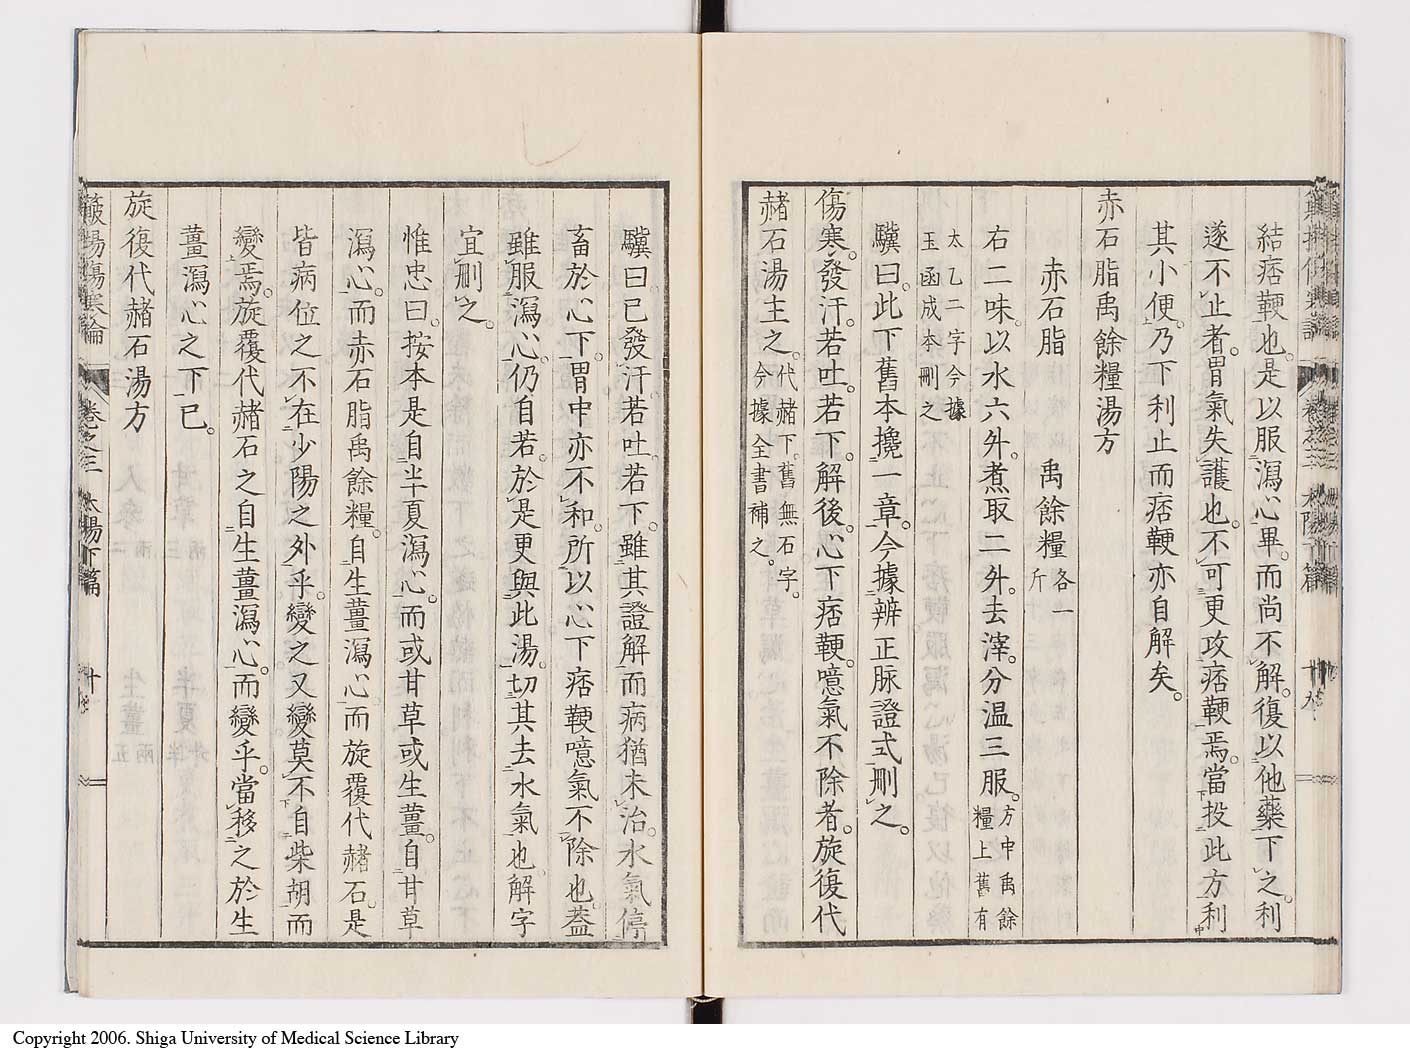 結痞鞕也。是以服瀉心畢。而尚不解。復以他藥下之。利
遂不止者。胃氣失護也。不可更攻痞鞕焉。當投此方利
其小便。乃下利止而痞鞕亦自解矣。
赤石脂禹餘糧湯方
赤石脂 禹餘糧各一斤
右二味。以水六升。煮取二升。去滓。分温三服。方中禹餘糧上舊有
太乙二字今據玉函成本刪之
驥曰。此下舊本攙一章。今據辨正脉證式刪之。
傷寒。發汗。若吐。若下。解後。心下痞鞕。噫氣不除者。旋復代
赭石湯主之。代赭下。舊無石字。今據全書補之。
驥曰。已發汗。若吐。若下。雖其證解而病猶未治。水氣停
畜於心下。胃中亦不和。所以心下痞鞕噫氣不除也。蓋
雖服瀉心。仍自若。於是更與此湯。切其去水氣也解字
宜刪之。
惟忠曰。按本是自半夏瀉心。而或甘草或生薑。自甘草
瀉心。而赤石脂禹餘糧。自生薑瀉心而旋覆代赭石。是
皆病位之不在少陽之外乎。變之又變莫不自柴胡而
變焉。旋覆代赭石之自生薑瀉心。而變乎。當移之於生
薑瀉心之下已。
旋復代赭石湯方
傷寒論 卷之三 太陽下篇 十